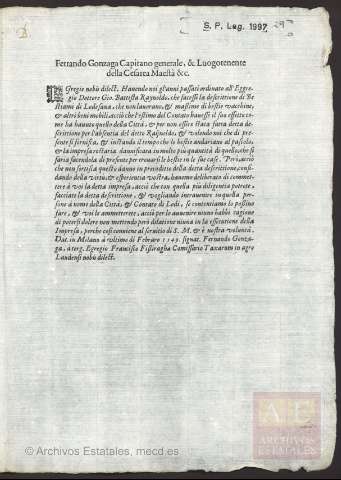 S. P. Leg. 1997
Ferrando Gonzaga Capitano generale, & Luogotenente
della Cesarea Maestà &c.
EGregie nobis dilect. Hauendo noi gl'anni passati ordinato all'Eggre-
gio Dottore Gio. Battista Raynoldo, che facessi la descrittione di Be
stiame di Lodesana, che non lauorano, & massimo di bestie vacchine,
& altri beni mobili, acciò che l'estimo del Contato hauessi il suo effetto co-
me ha hauuto quello della Città, & per non esser stata fatta detta de-
scrittione per l'absentia del detto Rajnoldo, & volendo noi che di pre-
sente si fornisca, & instando il tempo che le bestie andariano al pascolo,
& la impresa restaria damnificata in molto più quantità di quello, che si
faria facendola di presente per trouarsi le bestie in le sue case. Però, acciò
che non sortisca questo danno in preiuditio della descrittione, confi-
dando della virtù, & esperientia vostra, hauemo deliberato di commet-
tere à voi la detta impresa, acciò che con quella più diligentia potrete,
facciate la detta descrittione, & vogliando intrauenire in quella per-
sone à nomi della Città, & Contato di Lodi, si contentiamo lo possino
fare, & voi le ammetterete, acciò per lo auuenire niuno habbi ragione
di potersi dolere non mettendo però dilatione niuna in la essecutione della
Impresa, perche così conuiene al seruitio di S. M. & è nostra voluntà.
Dat. in Milano à vltimo di Febraro 1549. signat. Fernando Gonza-
ga, à terg. Egregio Francisco Fissiragha Comissario Taxarum in agro
Laudensi nobis dilect.
AE
ARCHIVOS
ESTATALES
© Archivos Estatales, mecd.es